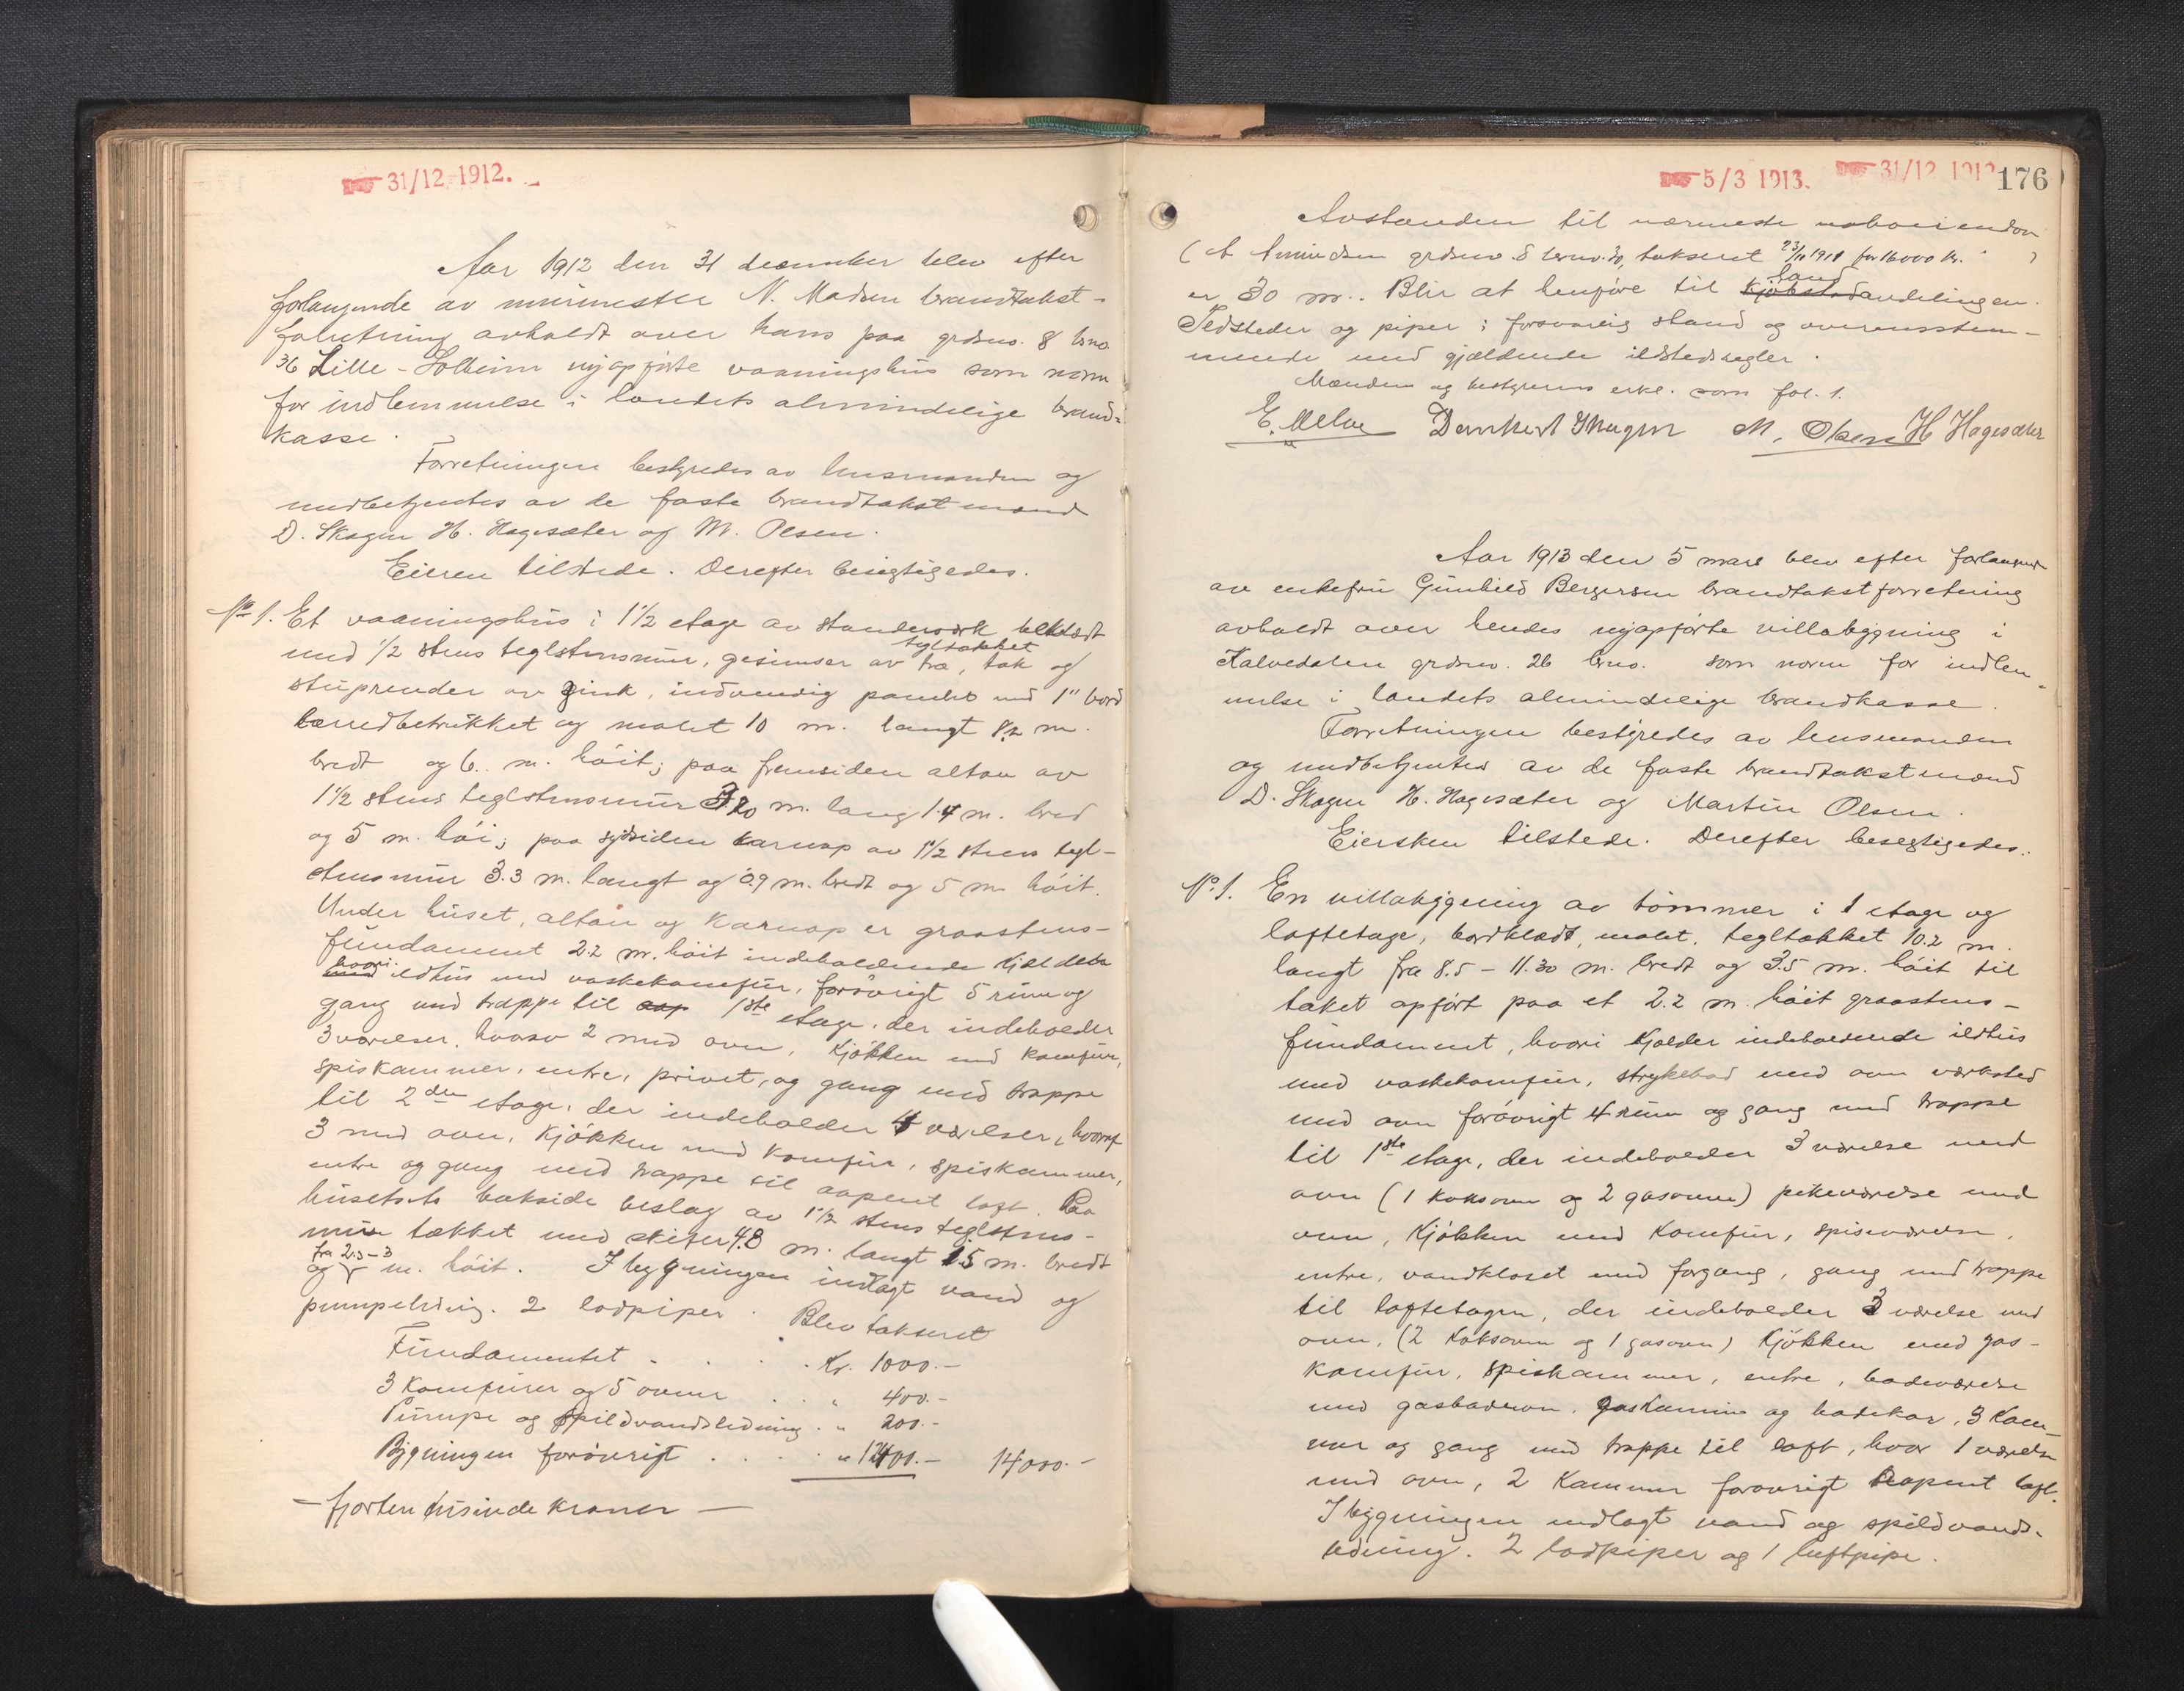 31/12 1912.
Aar 1912 den 31 december blev efter
forlangende av murmester N. Madsen brandtakst-
forretning avholdt over hans paa grdsno. 8 brno
36 Lille-Solheim nyopførte vaaningshus som norm
for indlemmelse i landets almindelige brand-
kasse.
Forretningen bestyredes av lensmanden og
medbetjentes av de faste brandtakstmænd
D. Skagen H. Hagesæter og M. Olsen.
Eieren tilstede. Derefter besigtigedes.
No 1. Et vaaningshus i 1 1/2 etage av standerværk beklædt
med 1/2 stens teglstensmur, gesimser av træ, tegltækket tak og
stuprender av zink, indvendig panelt med 1" bord
lærredbetrukket og malet 10 m. langt 8.2 m.
bredt og 6. m. høit; paa fremsiden altan av
1 1/2 stens teglstensmur 3.20 m. lang 1.4 m. bred
og 5 m. høi; paa sydsiden karnap av 1 1/2 stens tegl-
stensmur 3.3 m. langt og 0.9 m. bredt og 5 m høit.
Under huset, altan og karnap er graastens-
fundament 2.2 m. høit indeholdende kjælder
hvori ildhus med vaskekomfur, forøvrigt 5 rum og
gang med trappe til 1ste etage, der indeholder
3 værelser, hvorav 2 med ovn, kjøkken med komfur,
spiskammer, entre, privet, og gang med trappe
til 2den etage, der indeholder 4 værelser, hvoraf
3 med ovn, kjøkken med komfur, spiskammer,
entre og gang med trappe til aapent loft. Paa
husets bakside beslag av 1 1/2 stens teglstens-
mur tækket med skifer 4.8 m. langt 1.5 m. bredt
og fra 2.5-3 m. høit. I bygningen indlagt vand og
pumpeledning. 2 lodpiper. Blev takseret
Fundamentet . . . . Kr. 1000.-
3 komfurer og 5 ovner . . " 400.-
Pumpe og spildvandsledning . " 200.-
Bygningen forøvrigt . . . " 12400.- 14000.-
- fjorten tusinde kroner -
5/3 1913. 31/12 1912 176
Avstanden til nærmeste naboeiendom
(A Amundsen grdsno. 8 brno. 30, takseret 23/10 1911 for 16000 kr. )
er 30 m.. Blir at henføre til landavdelingen.
Ildsteder og piper i forsvarlig stand og overensstem-
mende med gjældende ildstedsregler.
Mændenes og bestyrerens erkl. som fol. 1.
E. Melve Dankert Skagen M. Olsen H Hagesæter
Aar 1913 den 5 mars blev efter forlangende
av enkefru Gunhild Bergersen brandtakstforretning
avholdt over hendes nyopførte villabygning i
Kalvedalen grdsno. 26 brno. som norm for indlem-
melse i landets almindelige brandkasse.
Forretningen bestyredes av lensmanden
og medbetjentes av de faste brandtakstmænd
D. Skagen H. Hagesæter og Martin Olsen.
Eiersken tilstede. Derefter besigtigedes.
No. 1. En villabygning av tømmer i 1 etage og
loftetage, bordklædt, malet, tegltækket 10.2 m.
langt fra 8.5 - 11.30 m. bredt og 3.5 m. høit til
taket opført paa et 2.2 m. høit graastens-
fundament, hvori kjælder indeholdende ildhus
med vaskekomfur, strykebod med ovn værksted
med ovn forøvrigt 4 rum og gang med trappe
til 1ste etage, der indeholder 3 værelse med
ovn (1 koksovn og 2 gasovne) pikeværelse med
ovn, kjøkken med komfur, spiseværelse,
entre, vandkloset med forgang, gang med trappe
til loftetagen, der indeholder 3 værelse med
ovn, (2 koksovn og 1 gasovn) kjøkken med gas-
komfur, spiskammer, entre, badeværelse
med gasbadeovn, gaskamin og badekar, 3 kam-
mer og gang med trappe til loft, hvor 1 værelse
med ovn, 2 kammer forøvrigt aapent loft.
I bygningen indlagt vand og spildvands-
ledning. 2 lodpiper og 1 luftpipe.